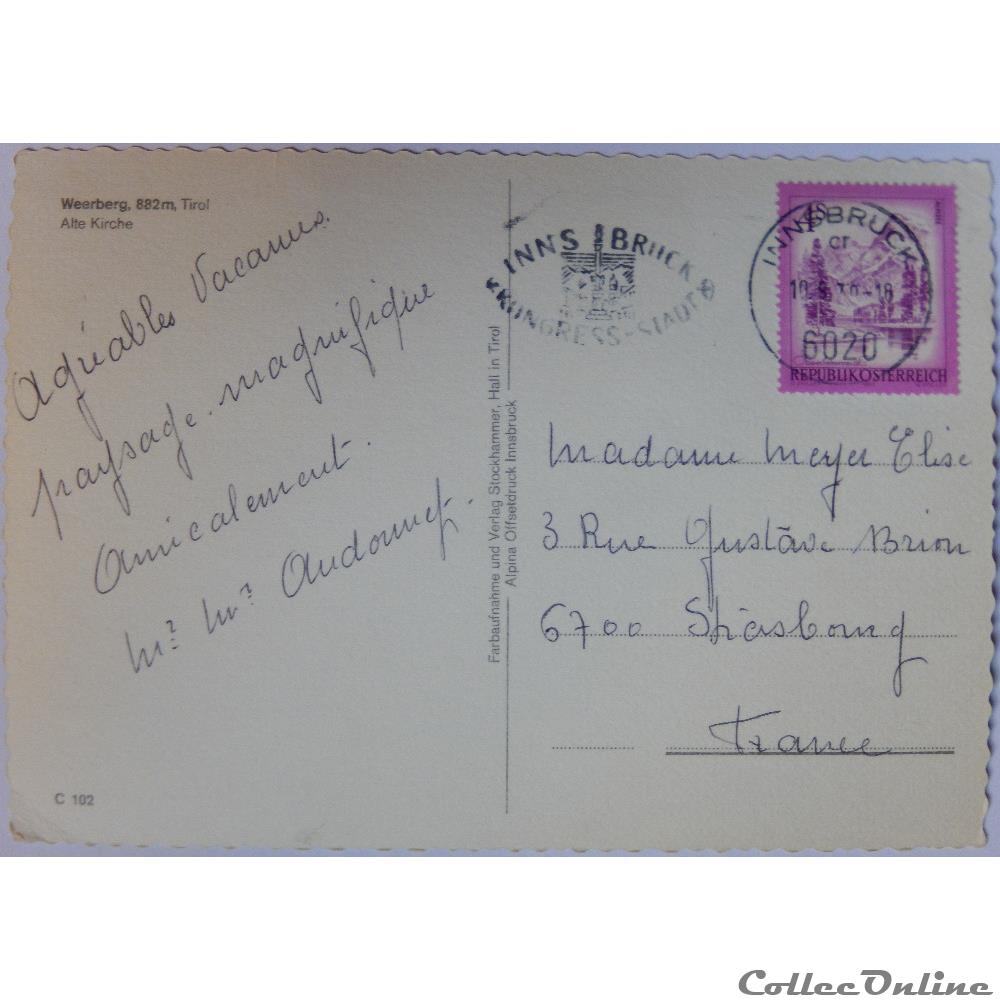 Weerberg, 882m, Tirol
Alte Kirche
Agréables Vacances.
paysage magnifique
Amicalement.
Mr Mme
C 102
Farbaufnahme und Verlag Stockhammer, Hall in Tirol
Alpina Offsetdruck Innsbruck
INNSBRUCK
KONGRESS-STADT
INNSBRUCK
6020
REPUBLIK ÖSTERREICH
Madame Meyer Elise
3 Rue Gustave Brion
6700 Strasbourg
France
CollecOnline